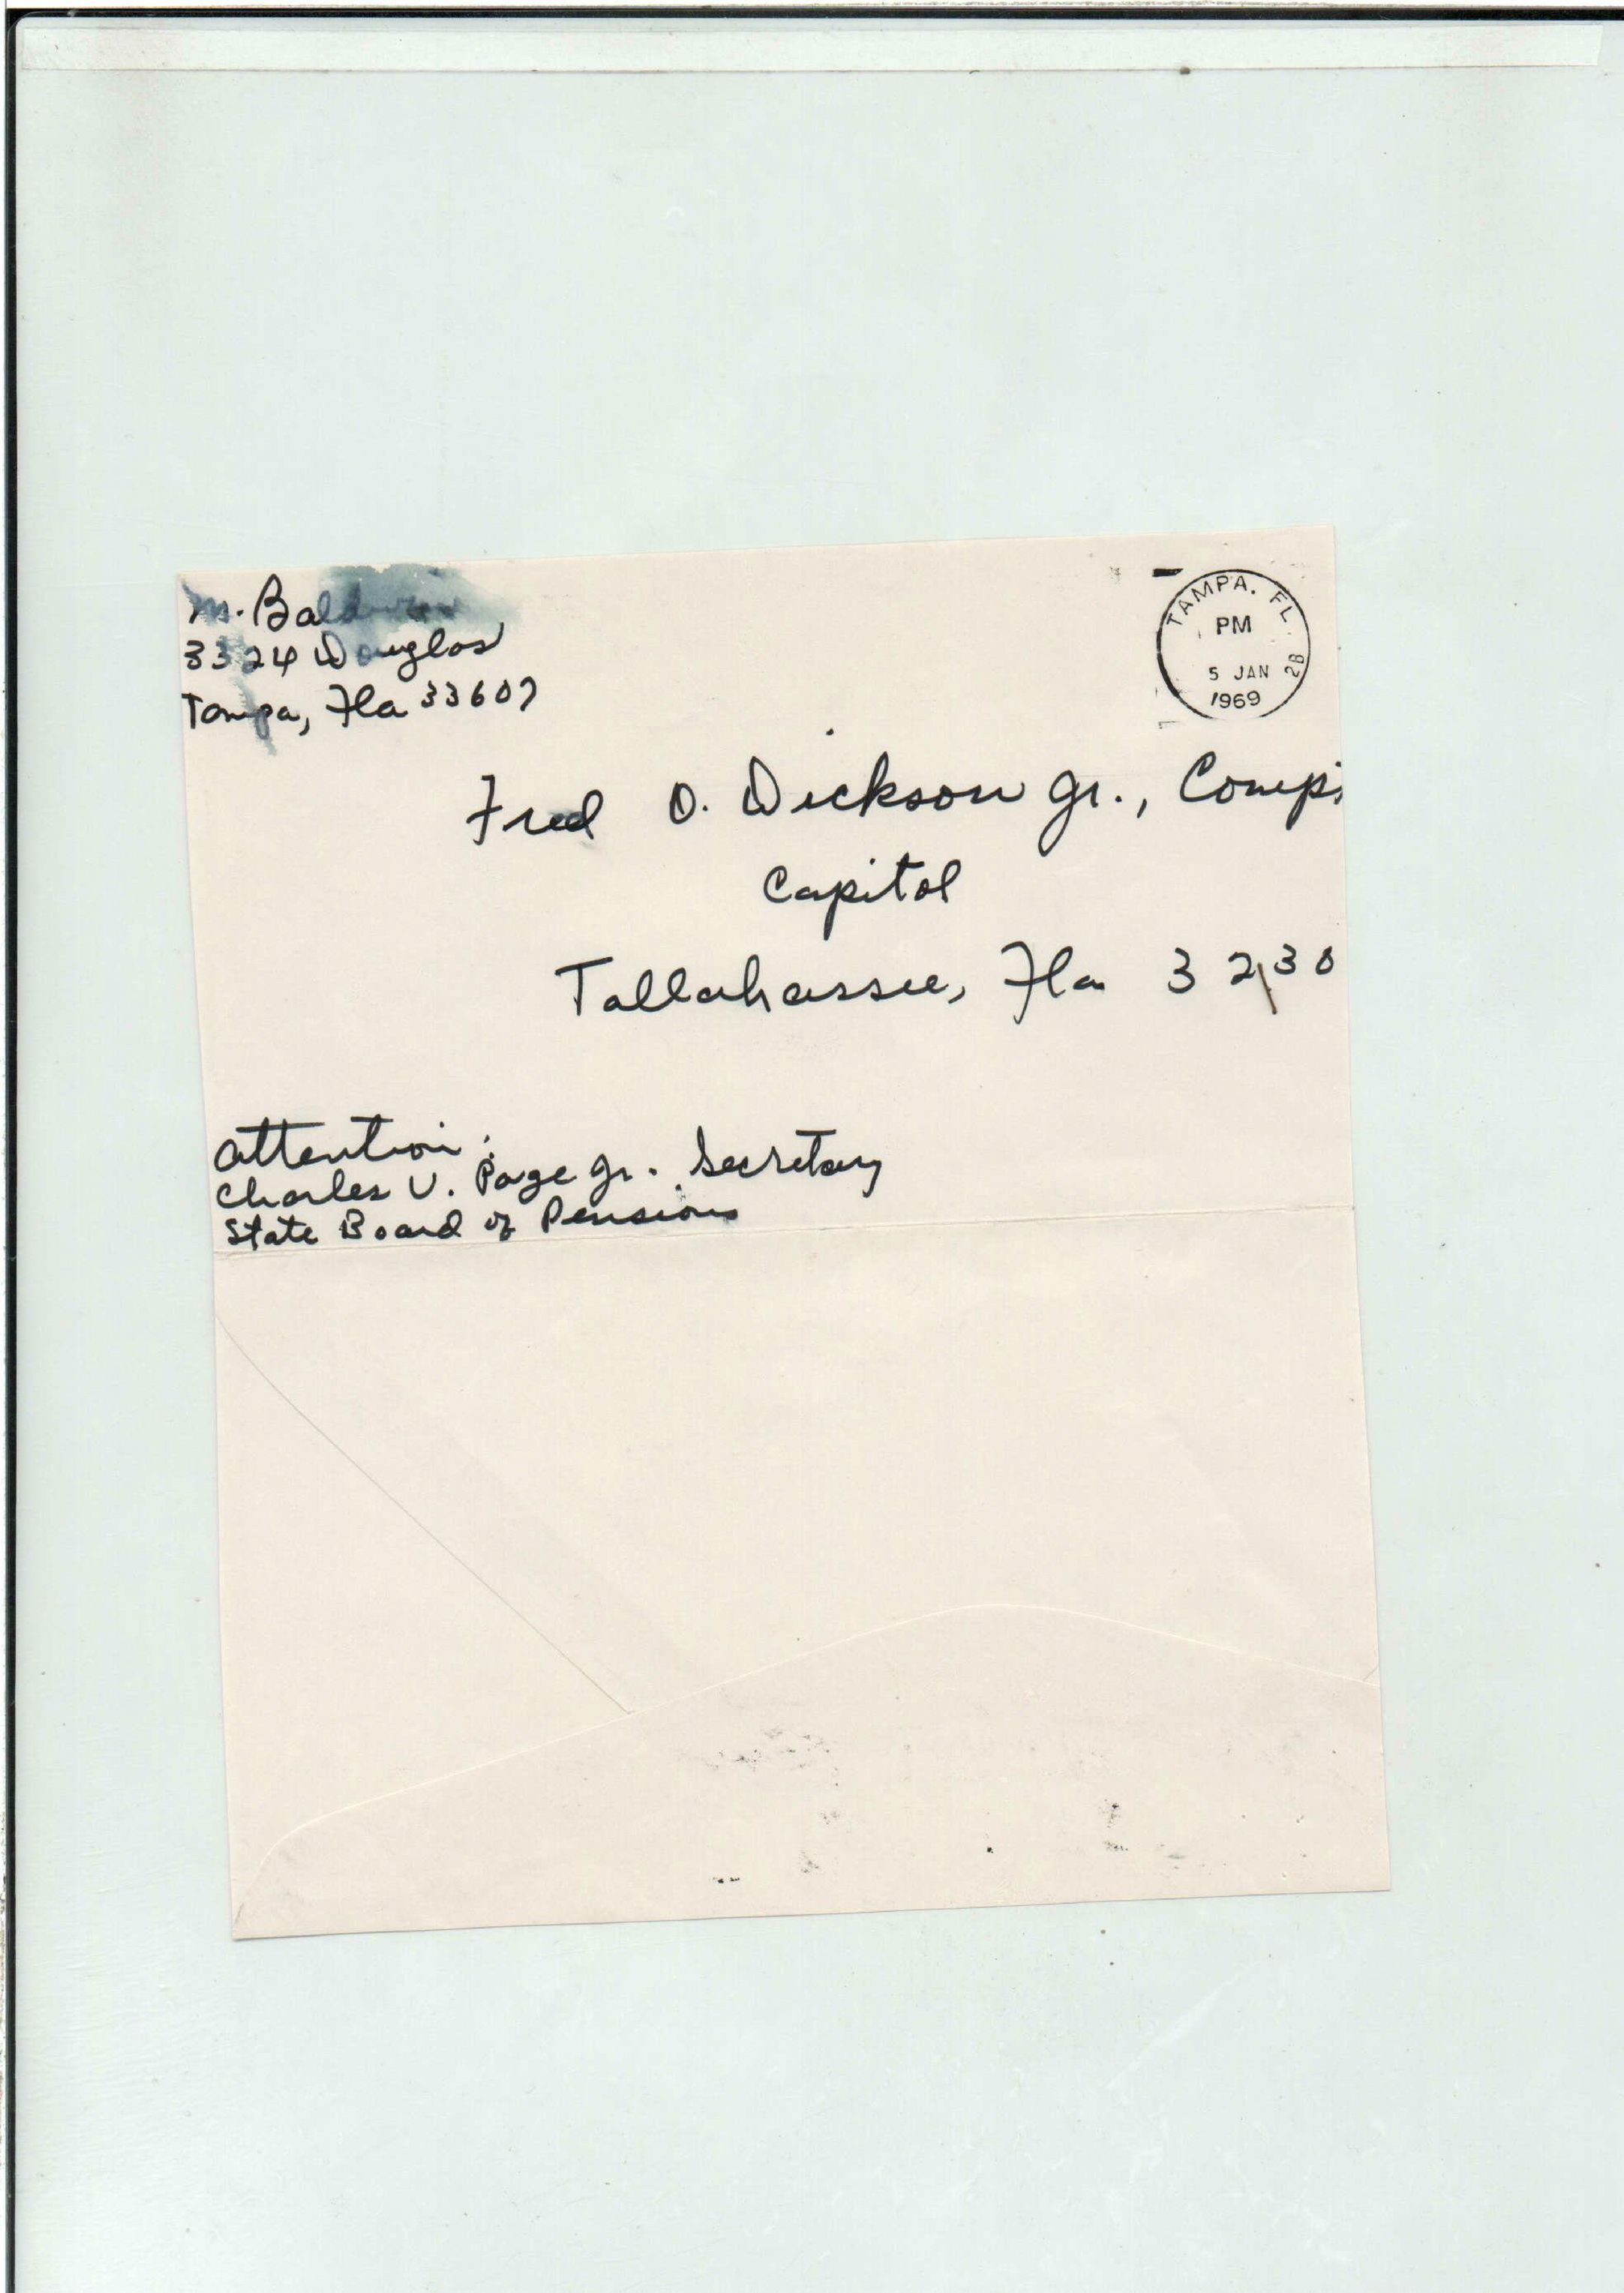 M. Baldwin
3324 Douglas
Tampa, Fla 33607
TAMPA, FL
PM
5 JAN
1969
2B
Fred O. Dickson Jr., Comp
Capitol
Tallahassee, Fla 3230
Attention:
Charles V. Page Jr. Secretary
State Board of Pensions